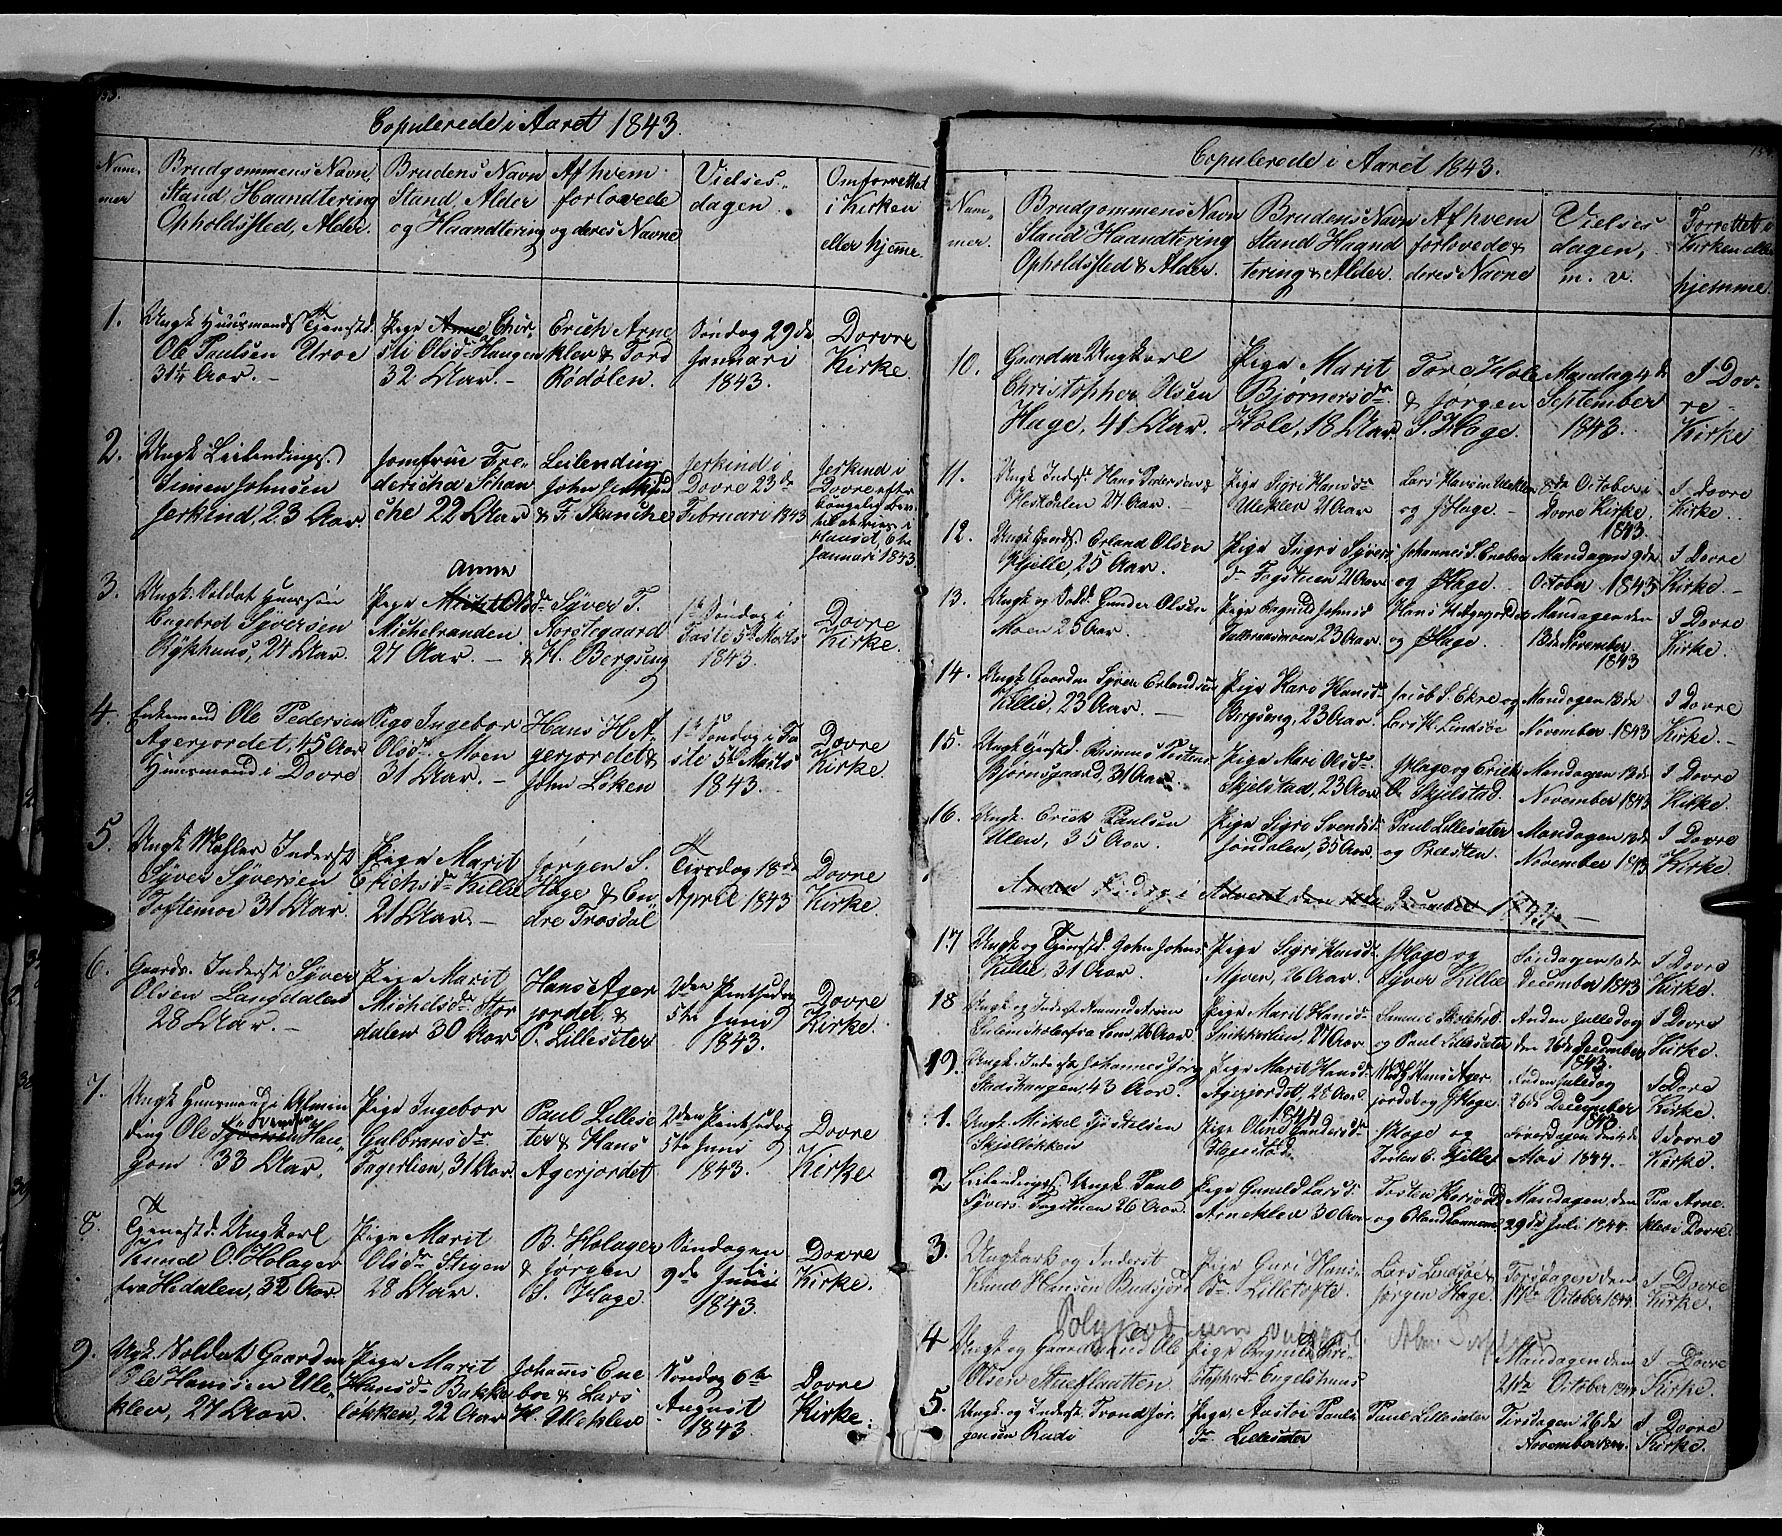 153.
Copulerede i Aaret 1843.
Num-
mer
Brudgommens Navn,
Stand, Haandtering
Opholdssted, Alder.
Brudens Navn
Stand, Alder
og Haandtering
Af hvem
forlovede
og deres Navne
Vielses-
dagen.
Om forrettet
i Kirken
eller hjemme.
1.
Ungk. Huusmands Tjenestd.
Ole Paulsen Uroe
31¼ Aar.-
Pige Anne Chir-
sti Olsdr. Haugen
32 Aar.-
Erich Arne
klev & Tord
Rødølen.
Søndag 29de
Januari
1843.
Dovre
Kirke.
2.
Ungk. Leilendings.
Simen Johnsen
Jerkind, 23 Aar.
Jomfrue Fre-
dericha Schan
che 22 Aar
Leilending
John Jerkind
& F. Skanche
Jerkind i
Dovre 23de
Februari 1843
Jerkind i
Dovre efter
Januari 1843.
3.
Ungk. Soldat Huussøn
Engebret Syversen
Rykhuus, 24 Aar.
Anna
Pige Michelsdr.
Michelranden
27 Aar.-
Syver T.
Aorstegaard
& H. Bergseng
1ste Søndag i
Faste 5te Marts
1843.
Dovre
Kirke.
4.
Enkemand Ole Pedersen
Agerjordet, 45 Aar
Huusmand i Dovre
Pige Ingebor
Olsdr. Moen
31 Aar.-
Hans H. A-
gerjordet &
John Løken
1ste Søndag i Fa
ste 5te Marts
1843.
Dovre
Kirke.
5.
Ungk. Mahler Inderst
Syver Syversen
Toftemoe 31 Aar.
Pige Marit
Erichsdr. Killie
21 Aar.-
Jørgen S.
Hage & En-
dre Trosdal
Tirsdag 18de
April 1843
Dovre
Kirke.
6.
Gaards. Inderst Syver
Olsen Langdalen
28 Aar.-
Pige Marit
Michelsdr. Stor
dalen 30 Aar
Hans Ager
jordet &
P. Lillesæter
2den Pintsedag
5te Juni
1843.
Dovre
Kirke.
7.
Ungk. Huusmand i Almin
ding Ole Syversen Hau
gom 33 Aar.
Pige Ingebor
Gulbransdr.
Fagerlien, 31 Aar.
Paul Lillesæ
ter & Hans
Agerjordet
2den Pintsedag
5te Juni
1843.
Dovre
Kirke
8.
Tjenestd. Ungkarl
Knud O. Holager
fra Hedalen, 32 Aar.
Pige Marit
Olsdr. Stigen
28 Aar.
B. Holager
& Jørgen
S. Hage.
Søndagen
9de Juli
1843.
Dovre
Kirke.
9.
Ungk. Soldat Gaardm.
Ole Hanssen Ule-
klev, 27 Aar.
Pige Marit
Hansdr. Bakke
løkken, 22 Aar
Johannes Ene
boe & Lars
H. Uleklev
Søndag 6te
August
1843.
Dovre
Kirke.
Copulerede i Aaret 1843.
Num-
mer.
Brudgommens Navn
Stand Haandtering
Opholdssted & Alder.
Brudens Navn
Stand Haand
tering & Alder.
Af hvem
forlovede &
deres Navne
Vielses
dagen,
m. v.
Forrettet i
Kirken eller
hjemme.
10.
Gaardm. Ungkarl
Christopher Olsen
Hage, 41 Aar.
Pige Marit
Bjørnersdr.
Hole, 18 Aar.
Tor Hole
& Jørgen
S. Hage.
Mandag 4de
September
1843.
I Dov-
re-
Kirke
11.
Ungk. Inderst. Hans Pedersen
Hestdalen 27 Aar.
Pige Sigri Hansdr.
Uleklev 21 Aar
Lars Hansen Uleklev
og J Hage-
8de October i
Dovre Kirke.
1843
I Dovre
Kirke.
12.
Ungk. Gaards. Erland Olsen
Kjelle, 25 Aar.
Pige Ingri Syvers
dr. Fogstuen 21 Aar
Johannes S. Eneboe
og J Hage.
Mandagen 9de
October 1843
I Dovre
Kirke.-
13.
Ungk. og Sold. Gunder Olsen
Moen 25 Aar.
Pige Ragnild Johnsd.
23 Aar.
og J Hage.
Mandagen den
13de November
1843
I Dovre
Kirke.
14.
Ungk. Gaardm. Syver Erlandsen
Killie, 23 Aar.-
Pige Karo Hansd.
Bergseng, 23 Aar.
Jacob S. Ekre og
Lars H. Lindsøe
Mandagen 13de
November 1843
I Dovre
Kirke.-
15.
Ungk. Tjenestd. Rasmus Tostens
Bjørnsgaard, 31 Aar.
Pige Mari Olsdr.
Skjelstad, 23 Aar.
J Hage og Erich
O. Skjelstad.
Mandagen 13de
November 1843
I Dovre
Kirke.
16.
Ungk. Erick Paulsen
Ulen, 35 Aar.
Pige Sigro Svendsd.
Jøndalen, 35 Aar.
Paul Lillesæter
og Præsten.
Mandagen 13de
November 1843
I Dovre
Kirke.
Anden Søndag i Advent den 10de December 1843.
17
Ungk. og Tjenestd. John Johns
Killie, 31 Aar.
Pige Sigri Knudsd.
26 Aar.
J Hage og
Syver Killie
Søndagen 10de
December 1843
I Dovre
Kirke.
18
Ungk. og Inderst Amund
fra Lom, 26 Aar.
Pige Marit Hansd.
Snikkerlien, 27 Aar
Samuel
og Paul Lillesæter
Anden Juledag
den 26de December
1843.
I Dovre
Kirke.
19.
Ungk. Inderste Johannes
43 Aar.
Pige Marit Hansd.
Agerjordet, 28 Aar
Hans Ager
jordet og J Hage
Anden Juledag
26de December
1843
I Dovre
Kirke.
1844
1.
Ungk. Mickel Tostelsen
Skjelløkken
Pige Olina Gundersdr.
J Hage og
Tosten E. Kjelle
Løverdagen den 4de
Mai 1844.-
I Dovre
Kirke.
2
Leilendings. Ungk. Paul
Syvers. Fogstuen 26 Aar.
Pige Gunild Larsd.
Arneklev 30 Aar
Tosten
og Erland
Mandagen den
29de Juli 1844.
Paa Arne
klev i Dovre.
3.
Ungkark og Inderst
Knud Hansen Budsjord
Pige Guri Hans
Dr. Lilletofte.
Lars Lindsøe &
Jørgen Hage.
Torsdagen den
17de October 1844.
I Dovre
Kirke.
Polypodium vulgare.
4
Ungk. og Gaardmand Ole
Olsen Stueflaatten
Pige Ragnild Chri-
stophersd. Engelshuus
Mandagen den
21de October 1844
I Dovre
Kirke.
5.
Ungk. og Inderst. Trond Jør-
gensen Rudi
Pige Aastoe Pauls
dr. Lillesæter
Paul Lillesæter
Tirsdagen 26de
November 1844.
I Dovre
Kirke.